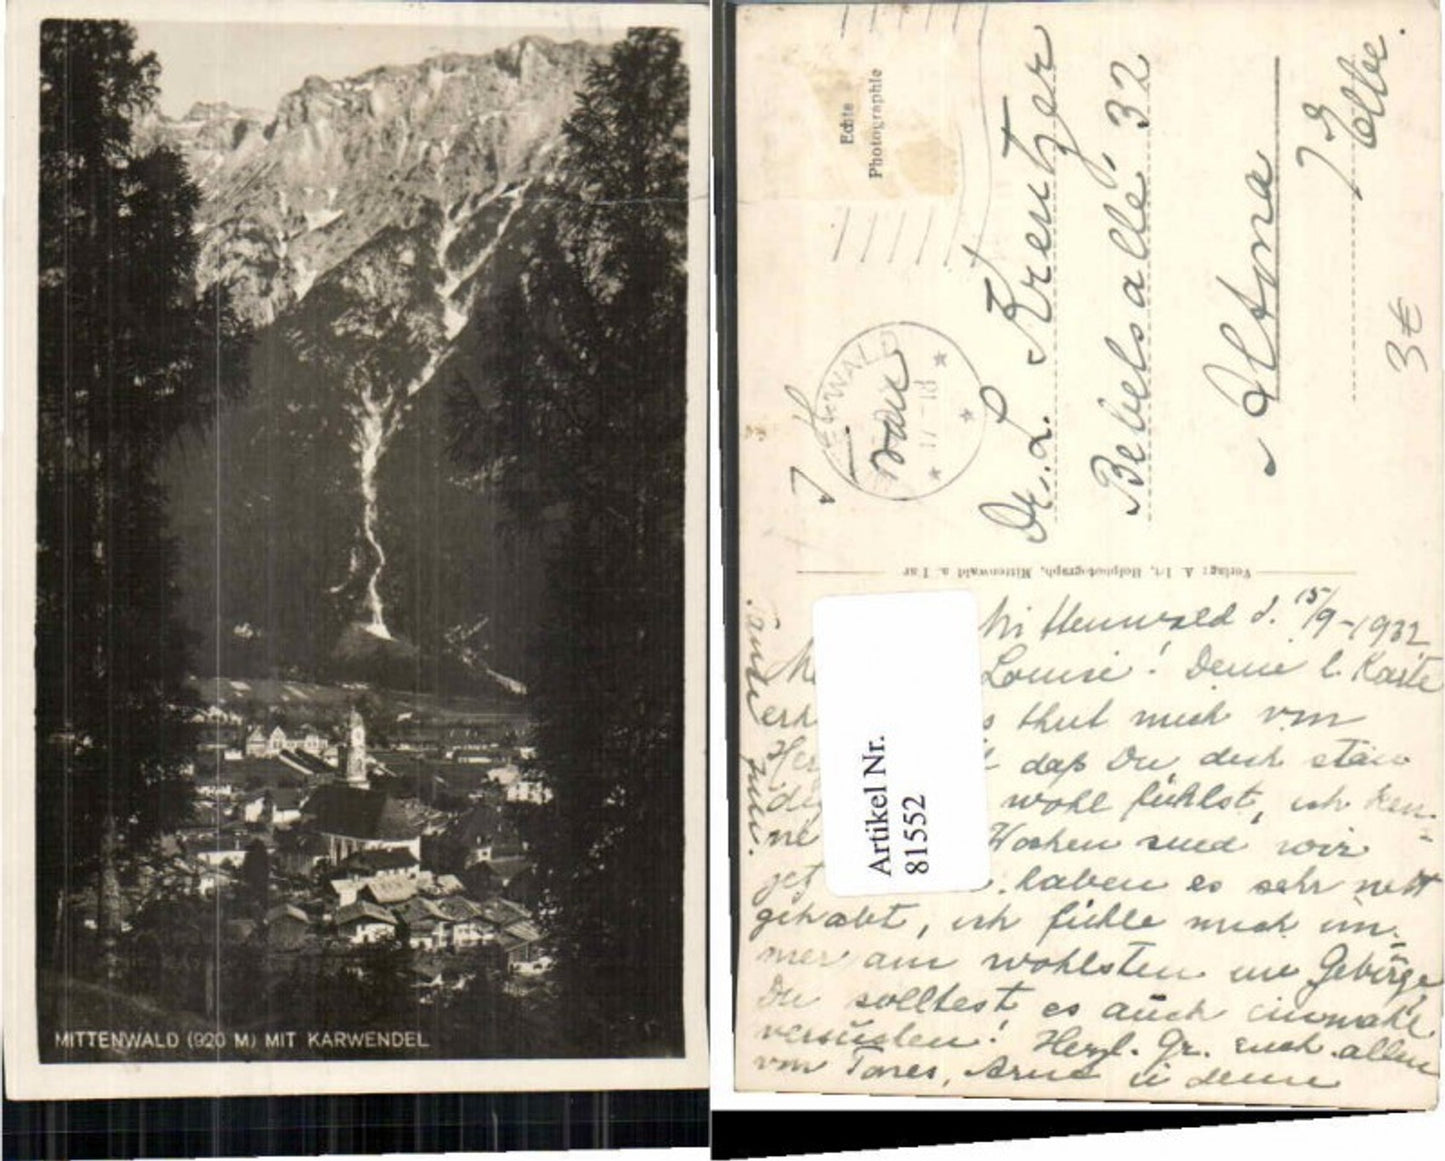 MITTENWALD (920 M) MIT KARWENDEL
Echte
Photographie
Dr. L. Kreutzer
Bebelsallé 32
Altona
/ Elbe.
3€
Verlag: A. Hofphotograph, Mittenwald a. Isar
Artikel Nr.
81552
Mittenwald d. 15/9-1932
Louise! Deine l. Karte
thut mich von
daß Du dich stän
wohl fühlst, ich ken-
ne Wochen sind wir
haben es sehr nett
gehabt, ich fühle mich im-
mer am wohlsten im Gebirge
Du solltest es auch einmal
versuchen! Herzl. Gr. Euch allen
von Arne u deine